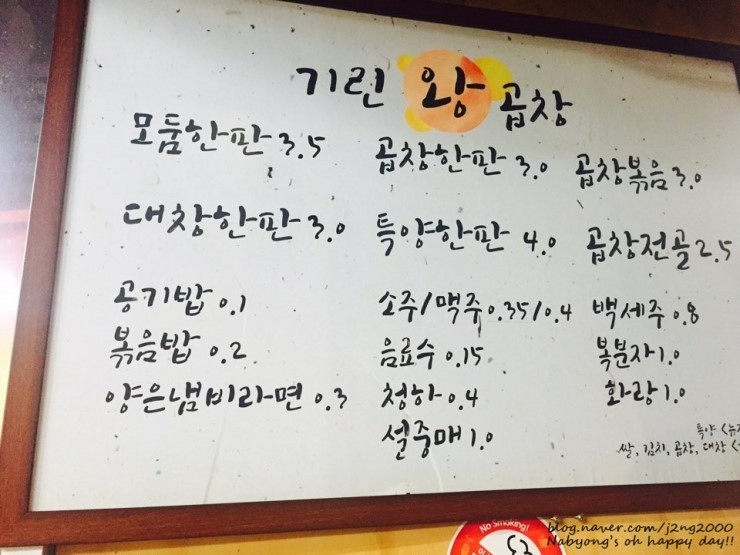 기린 왕 곱창
모둠한판 3.5 곱창한판 3.0 곱창볶음 3.0
대창한판 3.0 특양한판 4.0 곱창전골 2.5
공기밥 0.1 소주/맥주 0.35/0.4 백세주 0.8
볶음밥 0.2 음료수 0.15 복분자 1.0
양은냄비라면 0.3 청하 0.4 화랑 1.0
설중매 1.0
특양 <뉴
쌀, 김치, 곱창, 대창 <
No Smoking!
blog.naver.com/j2ng2000
Nabyong's oh happy day!!